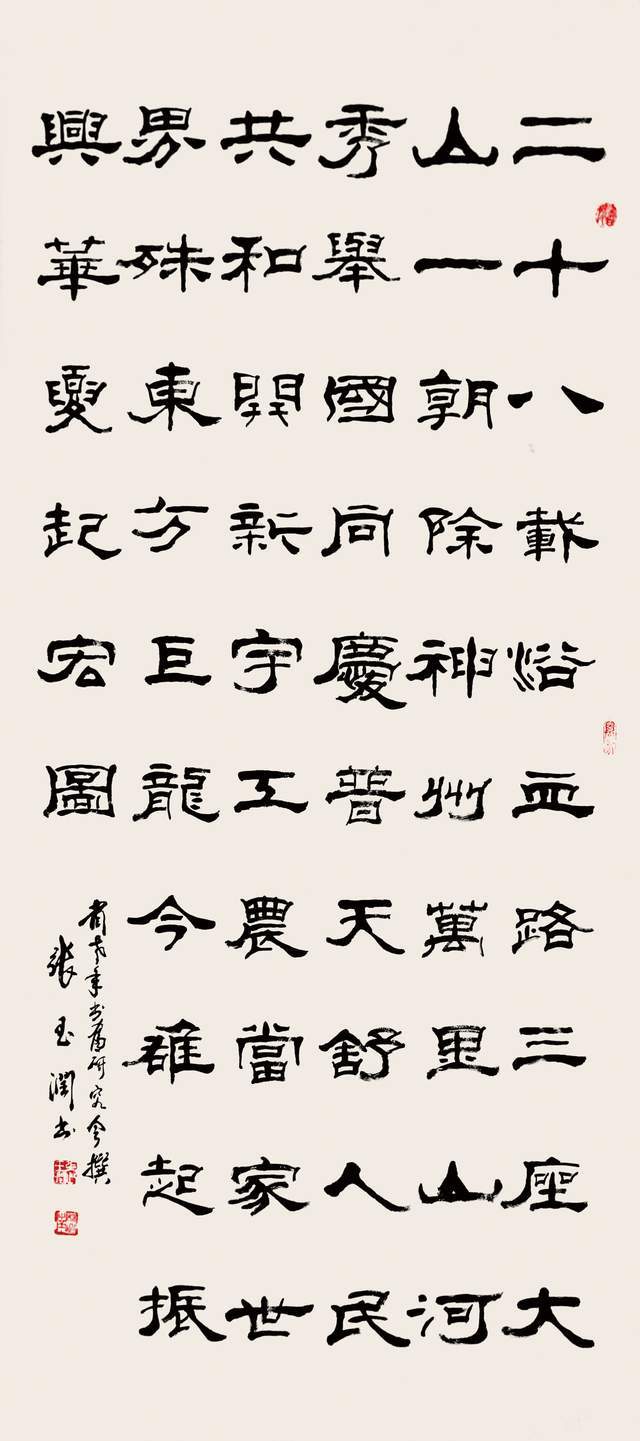 二十八載浴血路三座大
山一朝除神州萬里山河
秀舉國同慶普天舒人民
共和開新宇工農當家世
界殊東方巨龍今雄起振
興華夏起宏圖
省老年书畫研究會撰
張玉潤书